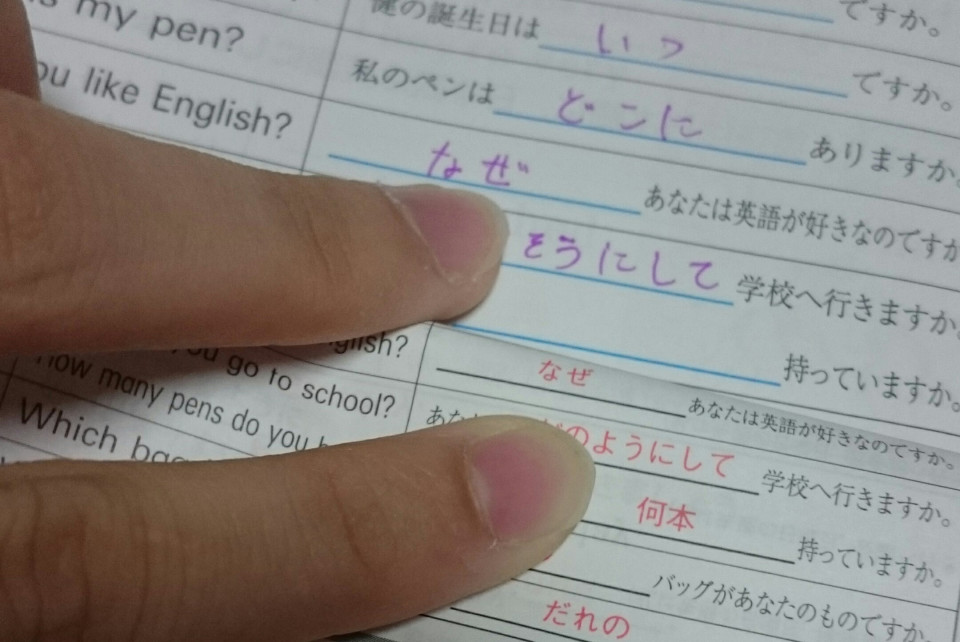 ですか。
my pen? 健の誕生日は いつ ですか。
you like English? 私のペンは どこに ありますか。
なぜ あなたは英語が好きなのですか
そうにして 学校へ行きますか。
持っていますか。
English? なぜ あなたは英語が好きなのですか。
you go to school? あな どのようにして 学校へ行きますか。
How many pens do you 何本 持っていますか。
Which バッグがあなたのものですか。
だれの